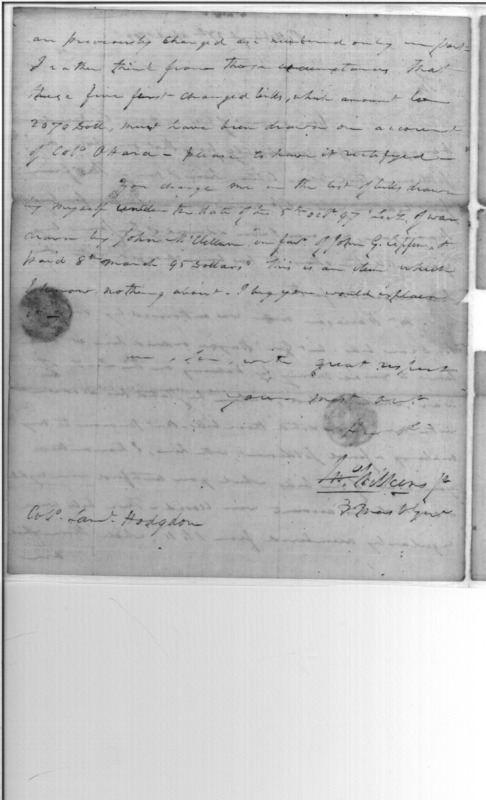 are previously charged are numbered only in part
I rather think from those circumstances that
these five first charged bills, which amount to
2070 Doll, must have been drawn on account
of Colº OHara - please to have it rectifyed -
You charge me in the list of bills drawn
by myself under the date of the 5th Octr 97
drawn by John McClellan in favr of John G.
paid 8th March 95 Dollars This is an item which
I know nothing about. I beg you would explain
I am, Sir, with great respect
your most obt
Jno Wilkins Jr
Colº Saml Hodgdon